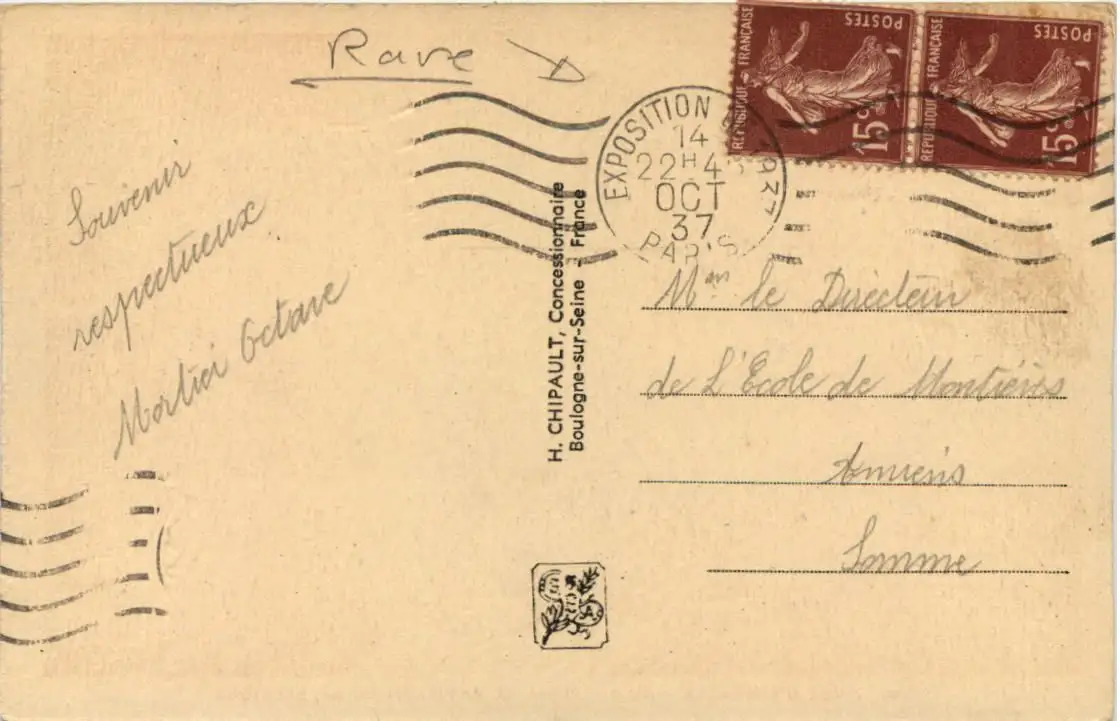 Rare
Souvenir
respectueux
Mortier Octave
H. CHIPAULT, Concessionnaire
Boulogne-sur-Seine - France
EXPOSITION 1937
14
22H4
OCT
37
PARIS
POSTES
RÉPUBLIQUE FRANÇAISE
15c
POSTES
RÉPUBLIQUE FRANÇAISE
15c
Mon le Directeur
de L'Ecole de Montières
Amiens
Somme